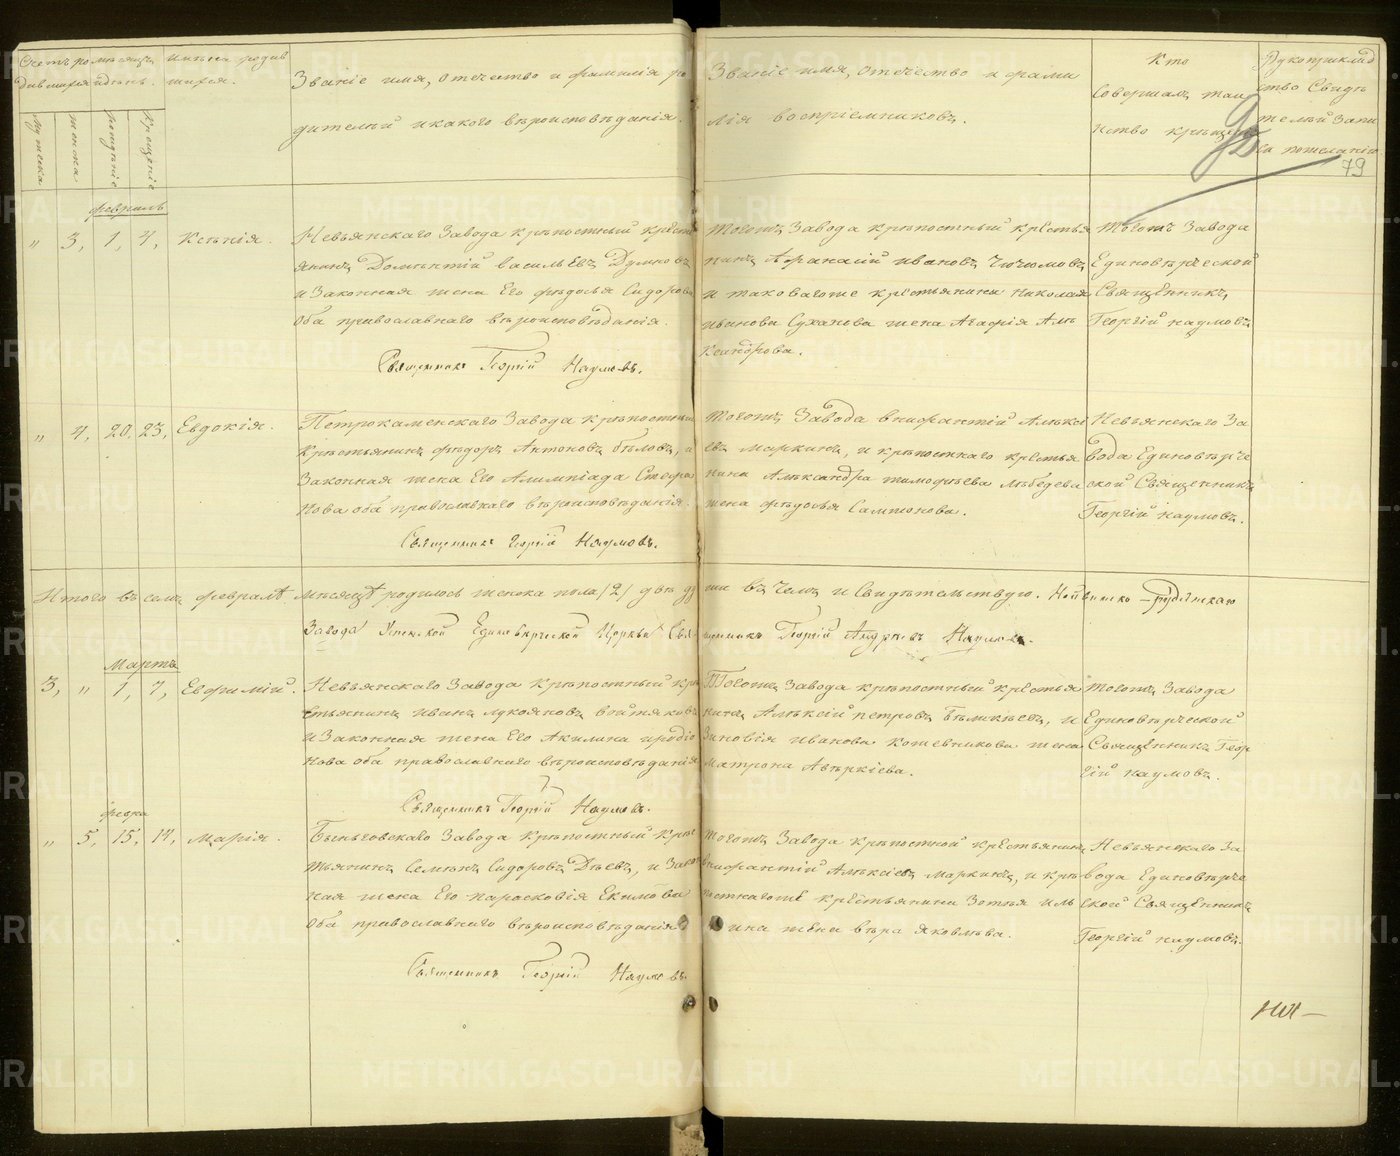 Счетъ ро
дившихся
мѣсяцъ
и день.
имѣна родив
шихся.
Званіе имя, отечество и фамилія ро
дителѣй и какого вѣроисповѣданія.
Званіе имя, отечество и фами
лія воспріемниковъ.
Кто
совершалъ таи
нство крѣщенія
Рукоприклад
ство свидѣ
телѣй запи
си пожеланію
79
Мужеска
женска
рождѣніе
Крещеніе
февраль
„ 3, 1, 4, Ксѣнія.
Невьянскаго Завода крѣпостный крѣсть
янинъ Домѣнтій васильевъ Думновъ
и Законная жена Его фѣдосья Сидорова
оба православнаго вѣроисповѣданія.
Священникъ Георгій Наумовъ.
тогожъ Завода крѣпостный крѣстья
нинъ Афанасій ивановъ Чючюмовъ
и таковагоже крѣстьянина николая
иванова Суханова жена Агафія Алѣ
ксандрова.
тогожъ Завода
Единовѣрческой
Священникъ
Георгій наумовъ
„ 4, 20, 23, Евдокія.
Петрокаменскаго Завода крѣпостный
крѣстьянинъ фѣдоръ Антоновъ бѣловъ, и
Законная жена Его Алимпіада Стефа
нова оба православнаго вѣроисповѣданія.
Священникъ Георгій Наумовъ.
тогожъ Завода внифантій Алѣксі
евъ Маркинъ, и крѣпостнаго крѣстья
нина Алѣксандра тимофѣева Лѣбедева
жена фѣдосья Сампсонова.
Невьянскаго За
вода Единовѣрче
ской Священникъ
Георгій наумовъ.
Итого въ семъ февралѣ мѣсяцѣ родилось женска пола /2/ двѣ ду
ши въ чемъ и свидѣтельствую. Нейвинско-рудянскаго
Завода Успенской Единовѣрческой Церкви Свя
щенникъ Георгій Андреевъ Наумовъ.
Мартъ
3, „ 1, 7, Евфимій.
Невьянскаго Завода крѣпостный крѣ
стьянинъ иванъ лукояновъ войтяковъ
и Законная жена Его Акилина иродіо
нова оба православнаго вѣроисповѣданія
Священникъ Георгій Наумовъ.
Тогожъ Завода крѣпостный крѣстья
нинъ Алѣксій петровъ Бѣликѣевъ, и
Зиновія иванова кошевникова жена
матрона Авѣркіева.
тогожъ Завода
Единовѣрческой
Священникъ Геор
гій наумовъ.
февра
„ 5, 15, 17, Марія.
Быньговскаго Завода крѣпостный крѣс
тьянинъ Семенъ Сидоровъ Дѣевъ, и Закон
ная жена Его парасковія Екимова
оба православнаго вѣроисповѣданія.
Священникъ Георгій Наумовъ.
тогожъ Завода крѣпостной крѣстьянинъ
внифантій Алѣксіевъ маркинъ, и крѣ
постнагожѣ крѣстьянина Зотѣя иль
ина жена вѣра яковлѣва.
Невьянскаго За
вода Единовѣрче
ской Священникъ
Георгій наумовъ.
METRIKI.GASO-URAL.RU